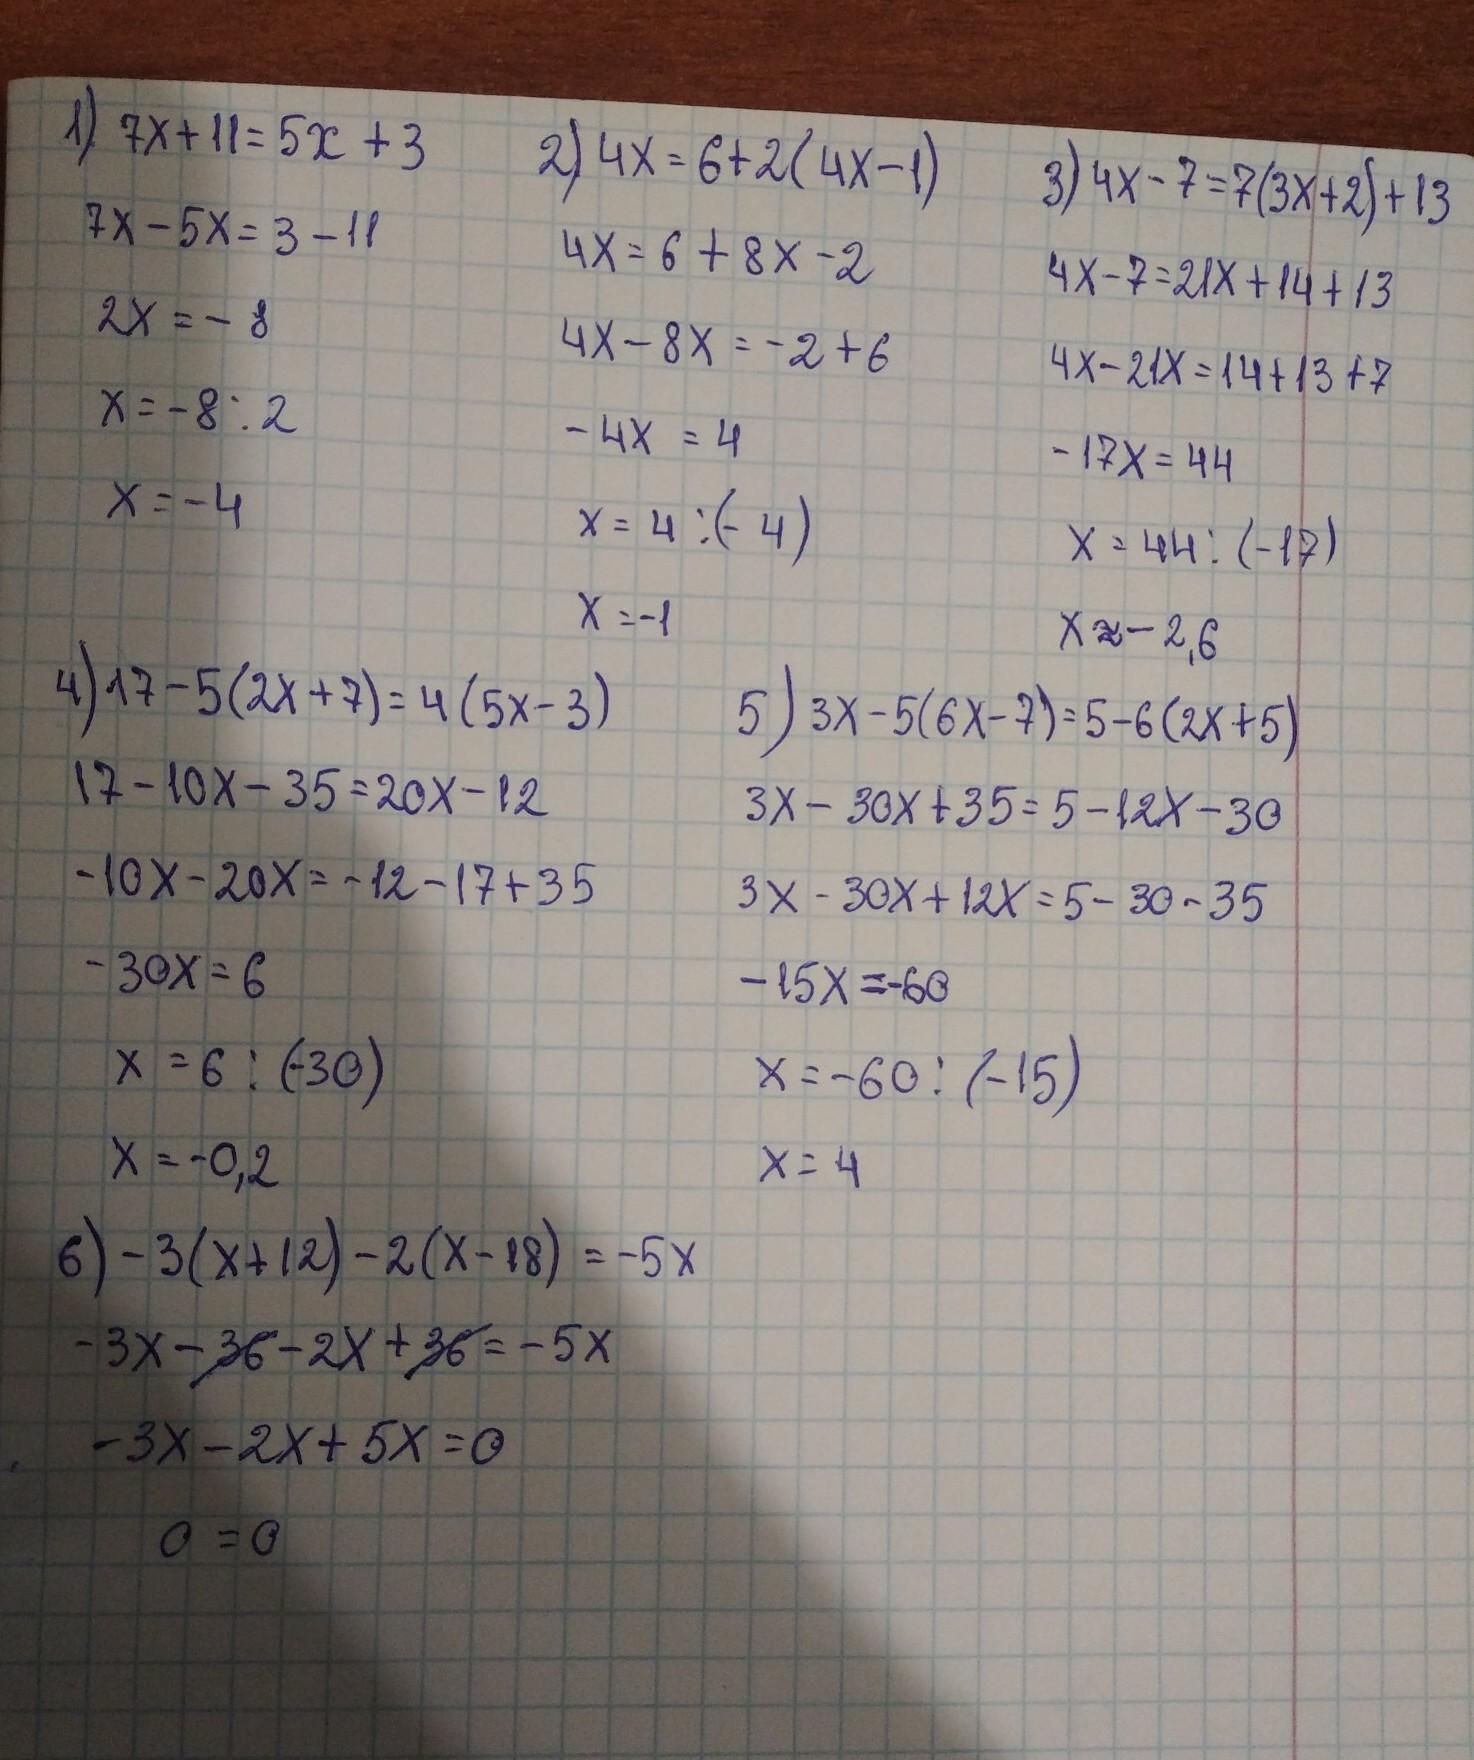 1) 7x+11=5x+3
7x-5x=3-11
2x=-8
x=-8:2
x=-4
2) 4x=6+2(4x-1)
4x=6+8x-2
4x-8x=-2+6
-4x=4
x=4:(-4)
x=-1
3) 4x-7=7(3x+2)+13
4x-7=21x+14+13
4x-21x=14+13+7
-17x=44
x=44:(-17)
x≈-2,6
4) 17-5(2x+7)=4(5x-3)
17-10x-35=20x-12
-10x-20x=-12-17+35
-30x=6
x=6:(-30)
x=-0,2
5) 3x-5(6x-7)=5-6(2x+5)
3x-30x+35=5-12x-30
3x-30x+12x=5-30-35
-15x=-60
x=-60:(-15)
x=4
6) -3(x+12)-2(x-18)=-5x
-3x-36-2x+36=-5x
-3x-2x+5x=0
0=0